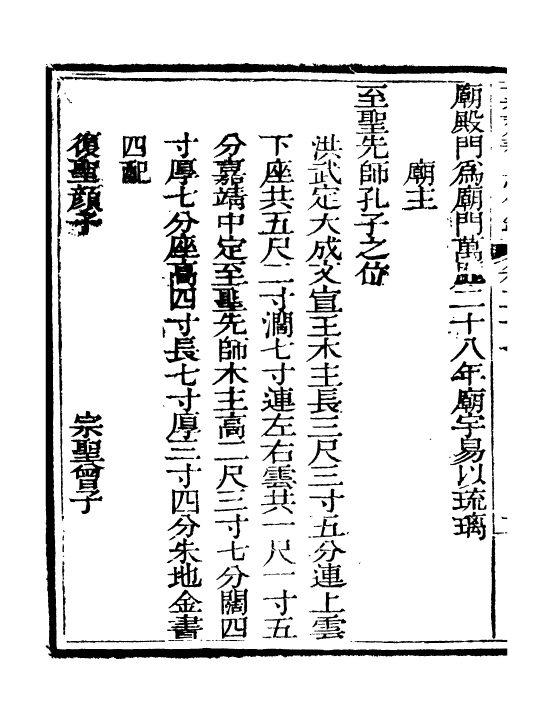 廟殿門爲廟門萬曆二十八年廟宇易以琉璃
廟主
至聖先師孔子之位
洪武定大成文宣王木主長三尺三寸五分連上雲
下座共五尺二寸濶七寸連左右雲共一尺一寸五
分嘉靖中定至聖先師木主高二尺三寸七分闊四
寸厚七分座高四寸長七寸厚三寸四分朱地金書
四配
復聖顔子 宗聖曾子